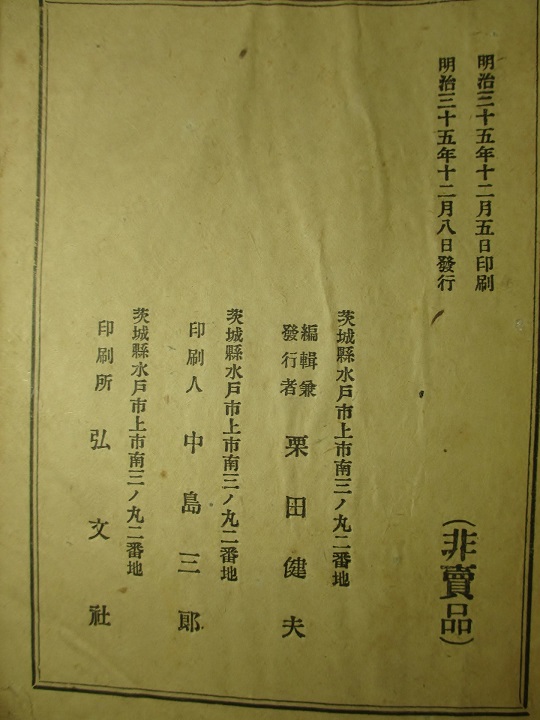 明治三十五年十二月五日印刷
明治三十五年十二月八日發行
(非賣品)
茨城縣水戸市上市南三ノ丸二番地
編輯兼
發行者
栗田健夫
茨城縣水戸市上市南三ノ丸二番地
印刷人 中島三郎
茨城縣水戸市上市南三ノ丸二番地
印刷所 弘文社